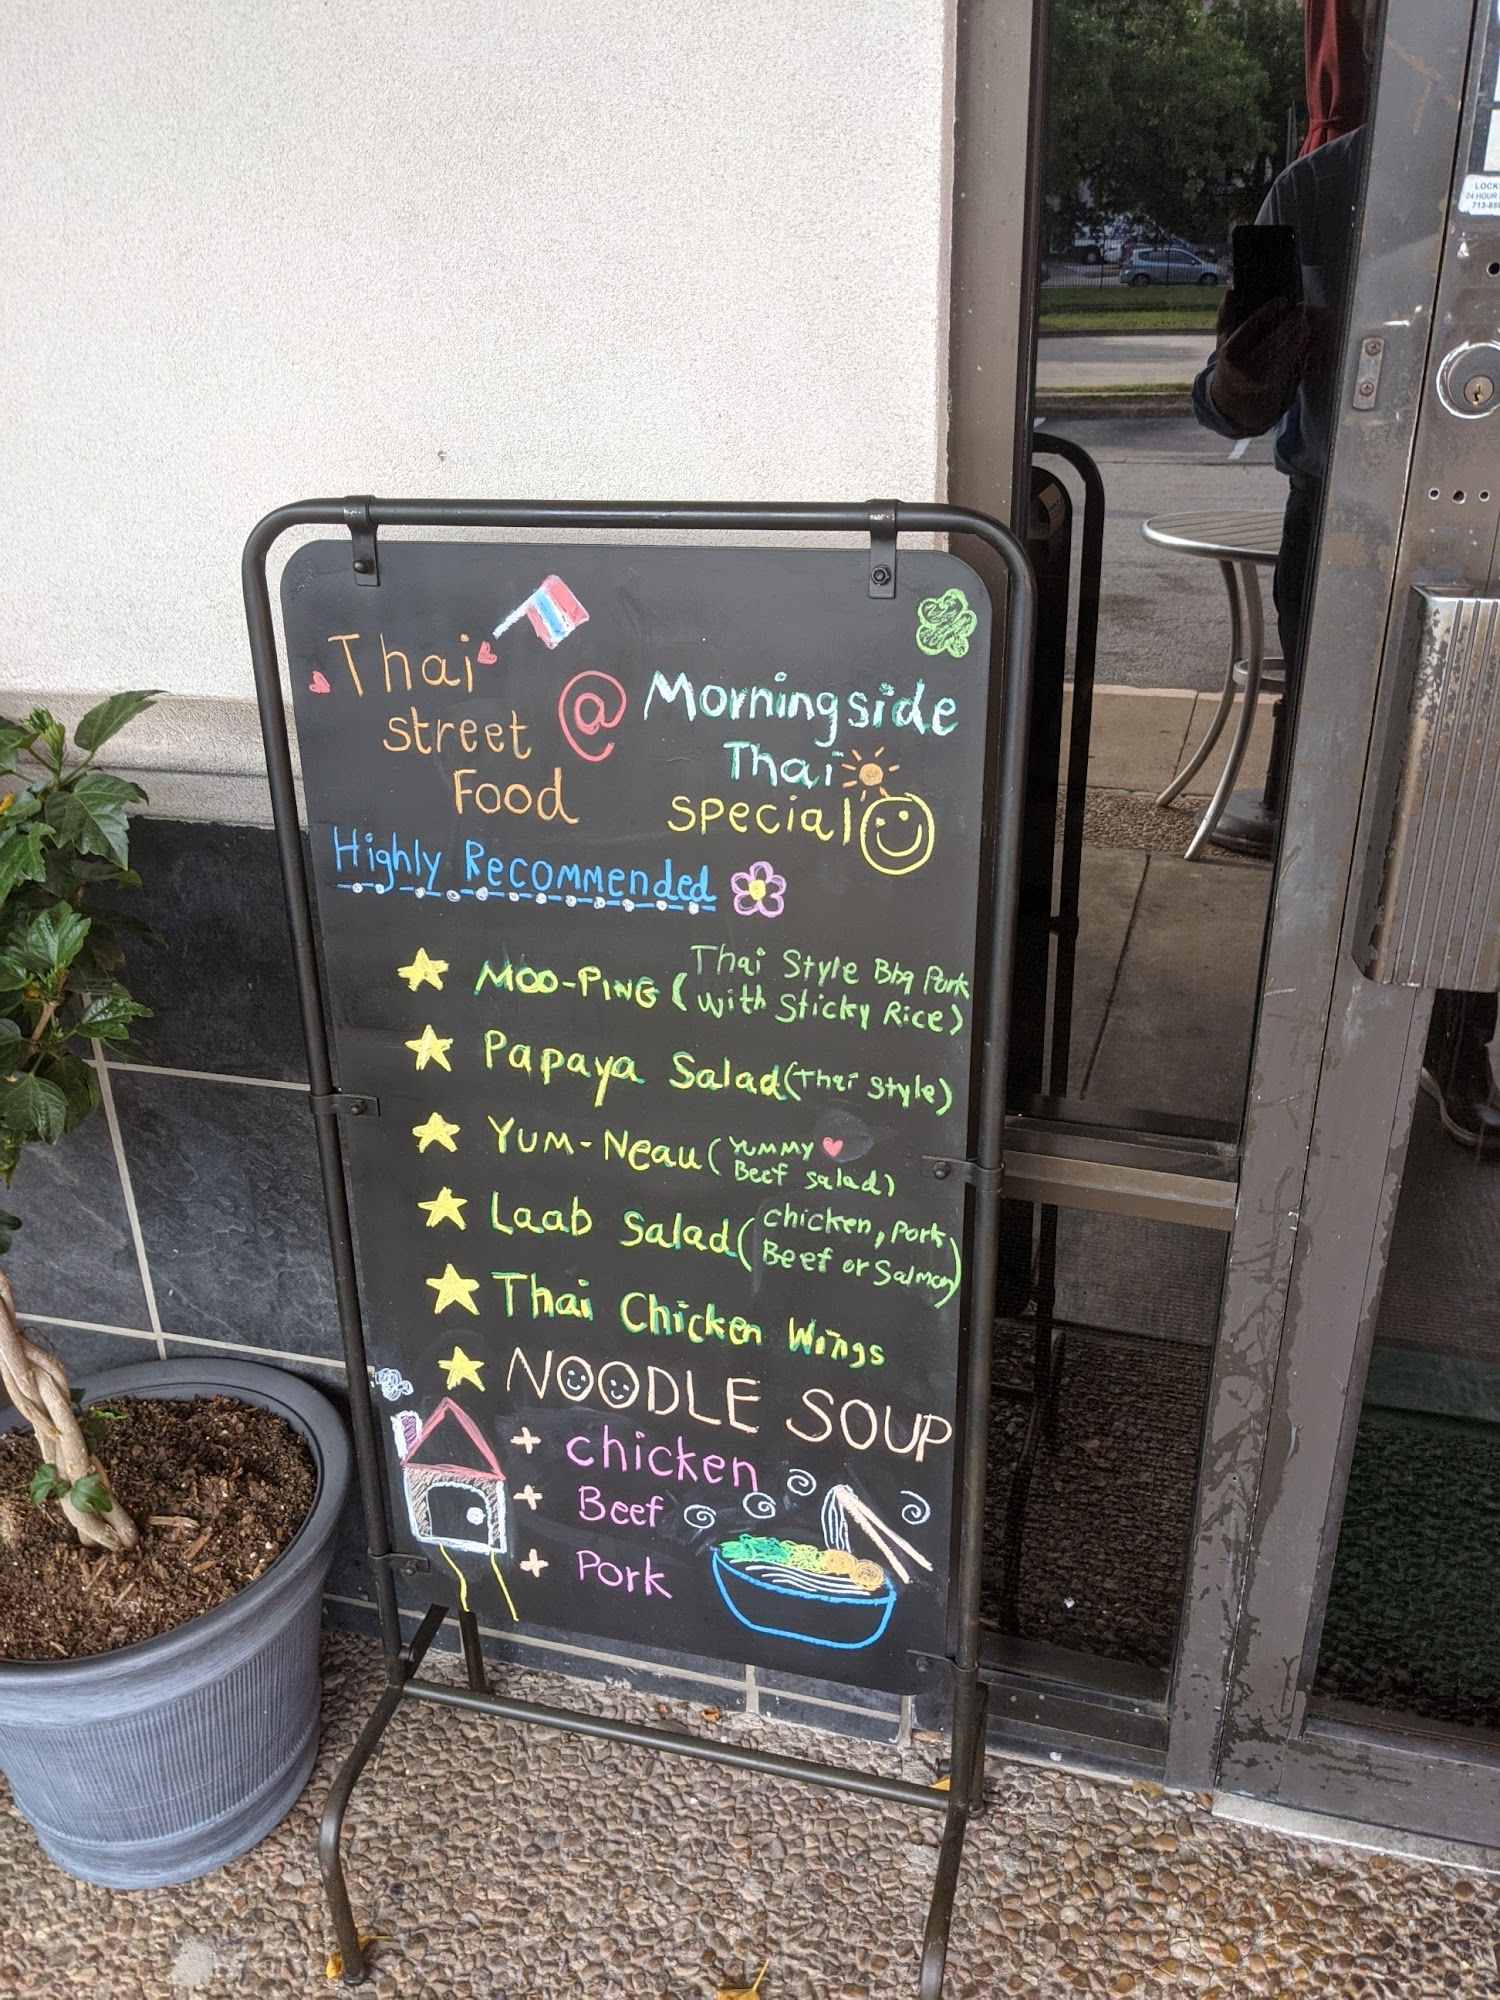 Thai
street
Food
@
Morningside
Thai
special
Highly Recommended
Moo-Ping (Thai Style Bbq Pork
with Sticky Rice)
Papaya Salad (Thai Style)
Yum-Neau (Yummy
Beef salad)
Laab Salad (chicken, pork
Beef or Salmon)
Thai Chicken Wings
NOODLE SOUP
+ chicken
+ Beef
+ Pork
24 HOUR